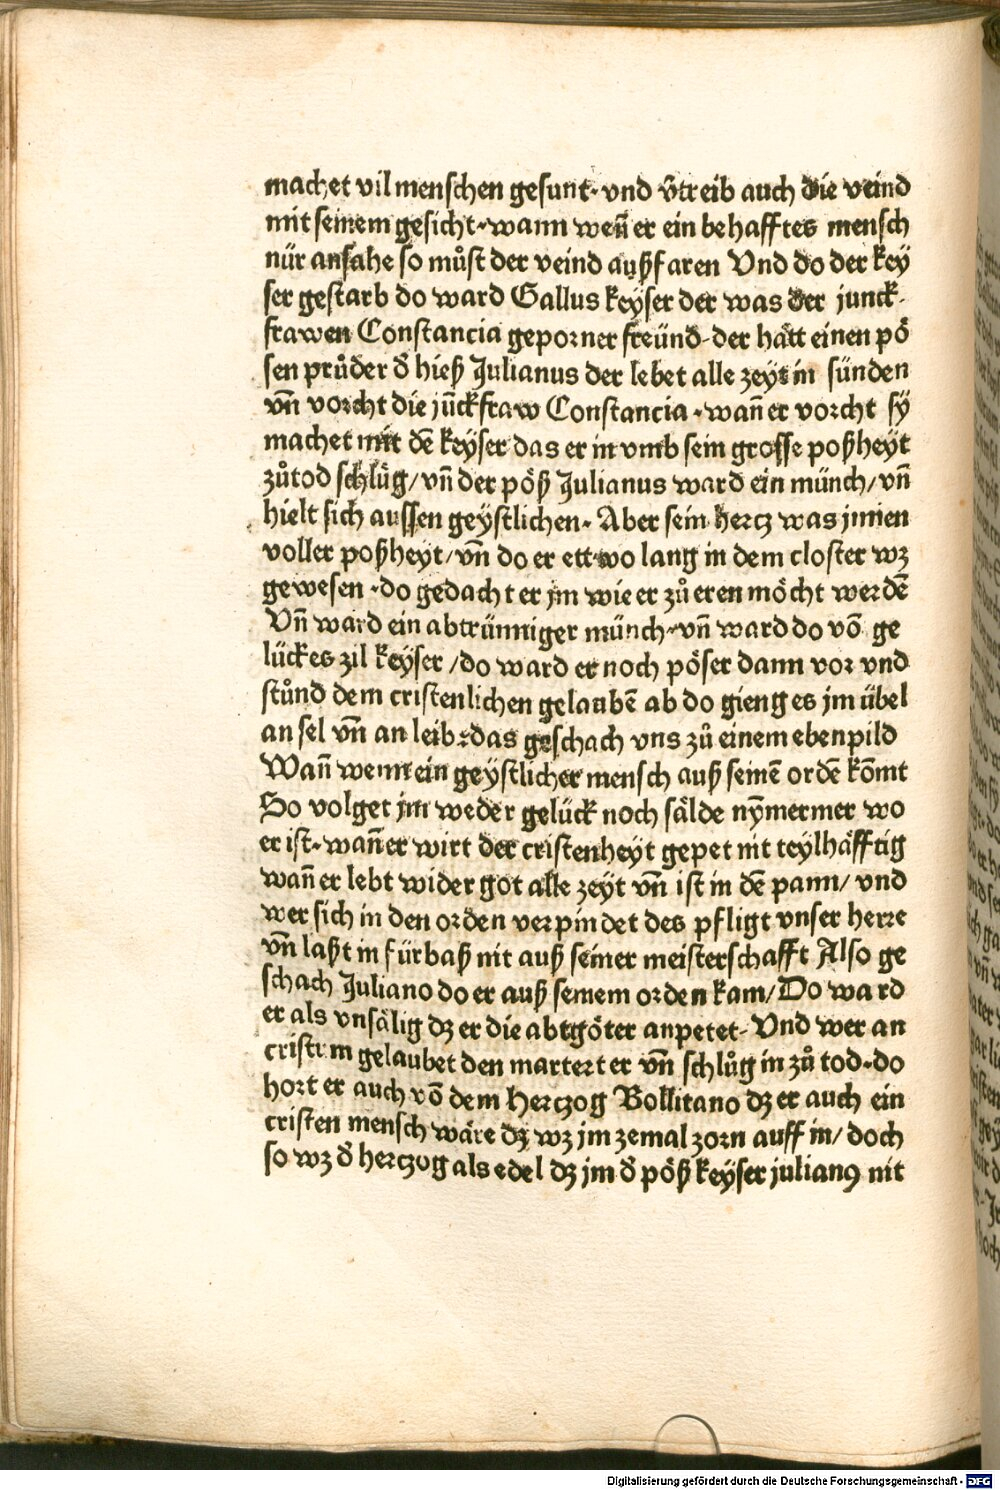 machet vil menschen gesunt· vnd v̄treib auch die veind
mit seinem gesicht· wann wen̄ er ein behafftes mensch
nür ansahe so můst der veind außfaren Vnd do der key
ser gestarb do ward Gallus keÿser der was der junck-
frawen Constancia geporner freünd· der hatt einen pö
sen průder d̄ hieß Julianus der lebet alle zeyt in sünden
vn̄ vorcht die jūckfraw Constancia · wan̄ er vorcht sÿ
machet mit dē keÿser das er in vmb sein grosse poßheÿt
zůtod schlůg/ vn̄ der pöß Julianus ward ein münch/ vn̄
hielt sich aussen geÿstlichen· Aber sein hertz was jnnen
voller poßheÿt/ vn̄ do er ettwo lang in dem closter wz
gewesen · do gedacht er jm wie er zů eren möcht werdē
Vn̄ ward ein abtrünniger münch· vn̄ ward do vō ge
lückes zil keÿser / do ward er noch pöser dann vor vnd
stůnd dem cristenlichen gelaubē ab do gieng es jm übel
an sel vn̄ an leib· das geschach vns zů einem ebenpild
Wan̄ wenn ein geÿstlicher mensch auß seinē ordē kōmt
So volget jm weder gelück noch sälde nȳmermer wo
er ist· wan̄ er wirt der cristenheyt gepet nit teylhäfftig
wan̄ er lebt wider got alle zeyt vn̄ ist in dē pann/ vnd
wer sich in den orden verpindet des pfligt vnser herre
vn̄ laßt in fürbaß nit auß seiner meisterschafft Also ge
schach Juliano do er auß seinem orden kam/ Do ward
er als vnsälig dz er die abtgöter anpetet· Vnd wer an
cristum gelaubet den martert er vn̄ schlůg in zů tod· do
hort er auch vō dem hertzog Bollitano dz er auch ein
cristen mensch wäre dz wz jm zemal zorn auff in/ doch
so wz d̄ hertzog als edel dz jm d̄ pöß keÿser julianꝰ nit
Digitalisierung gefördert durch die Deutsche Forschungsgemeinschaft - DFG